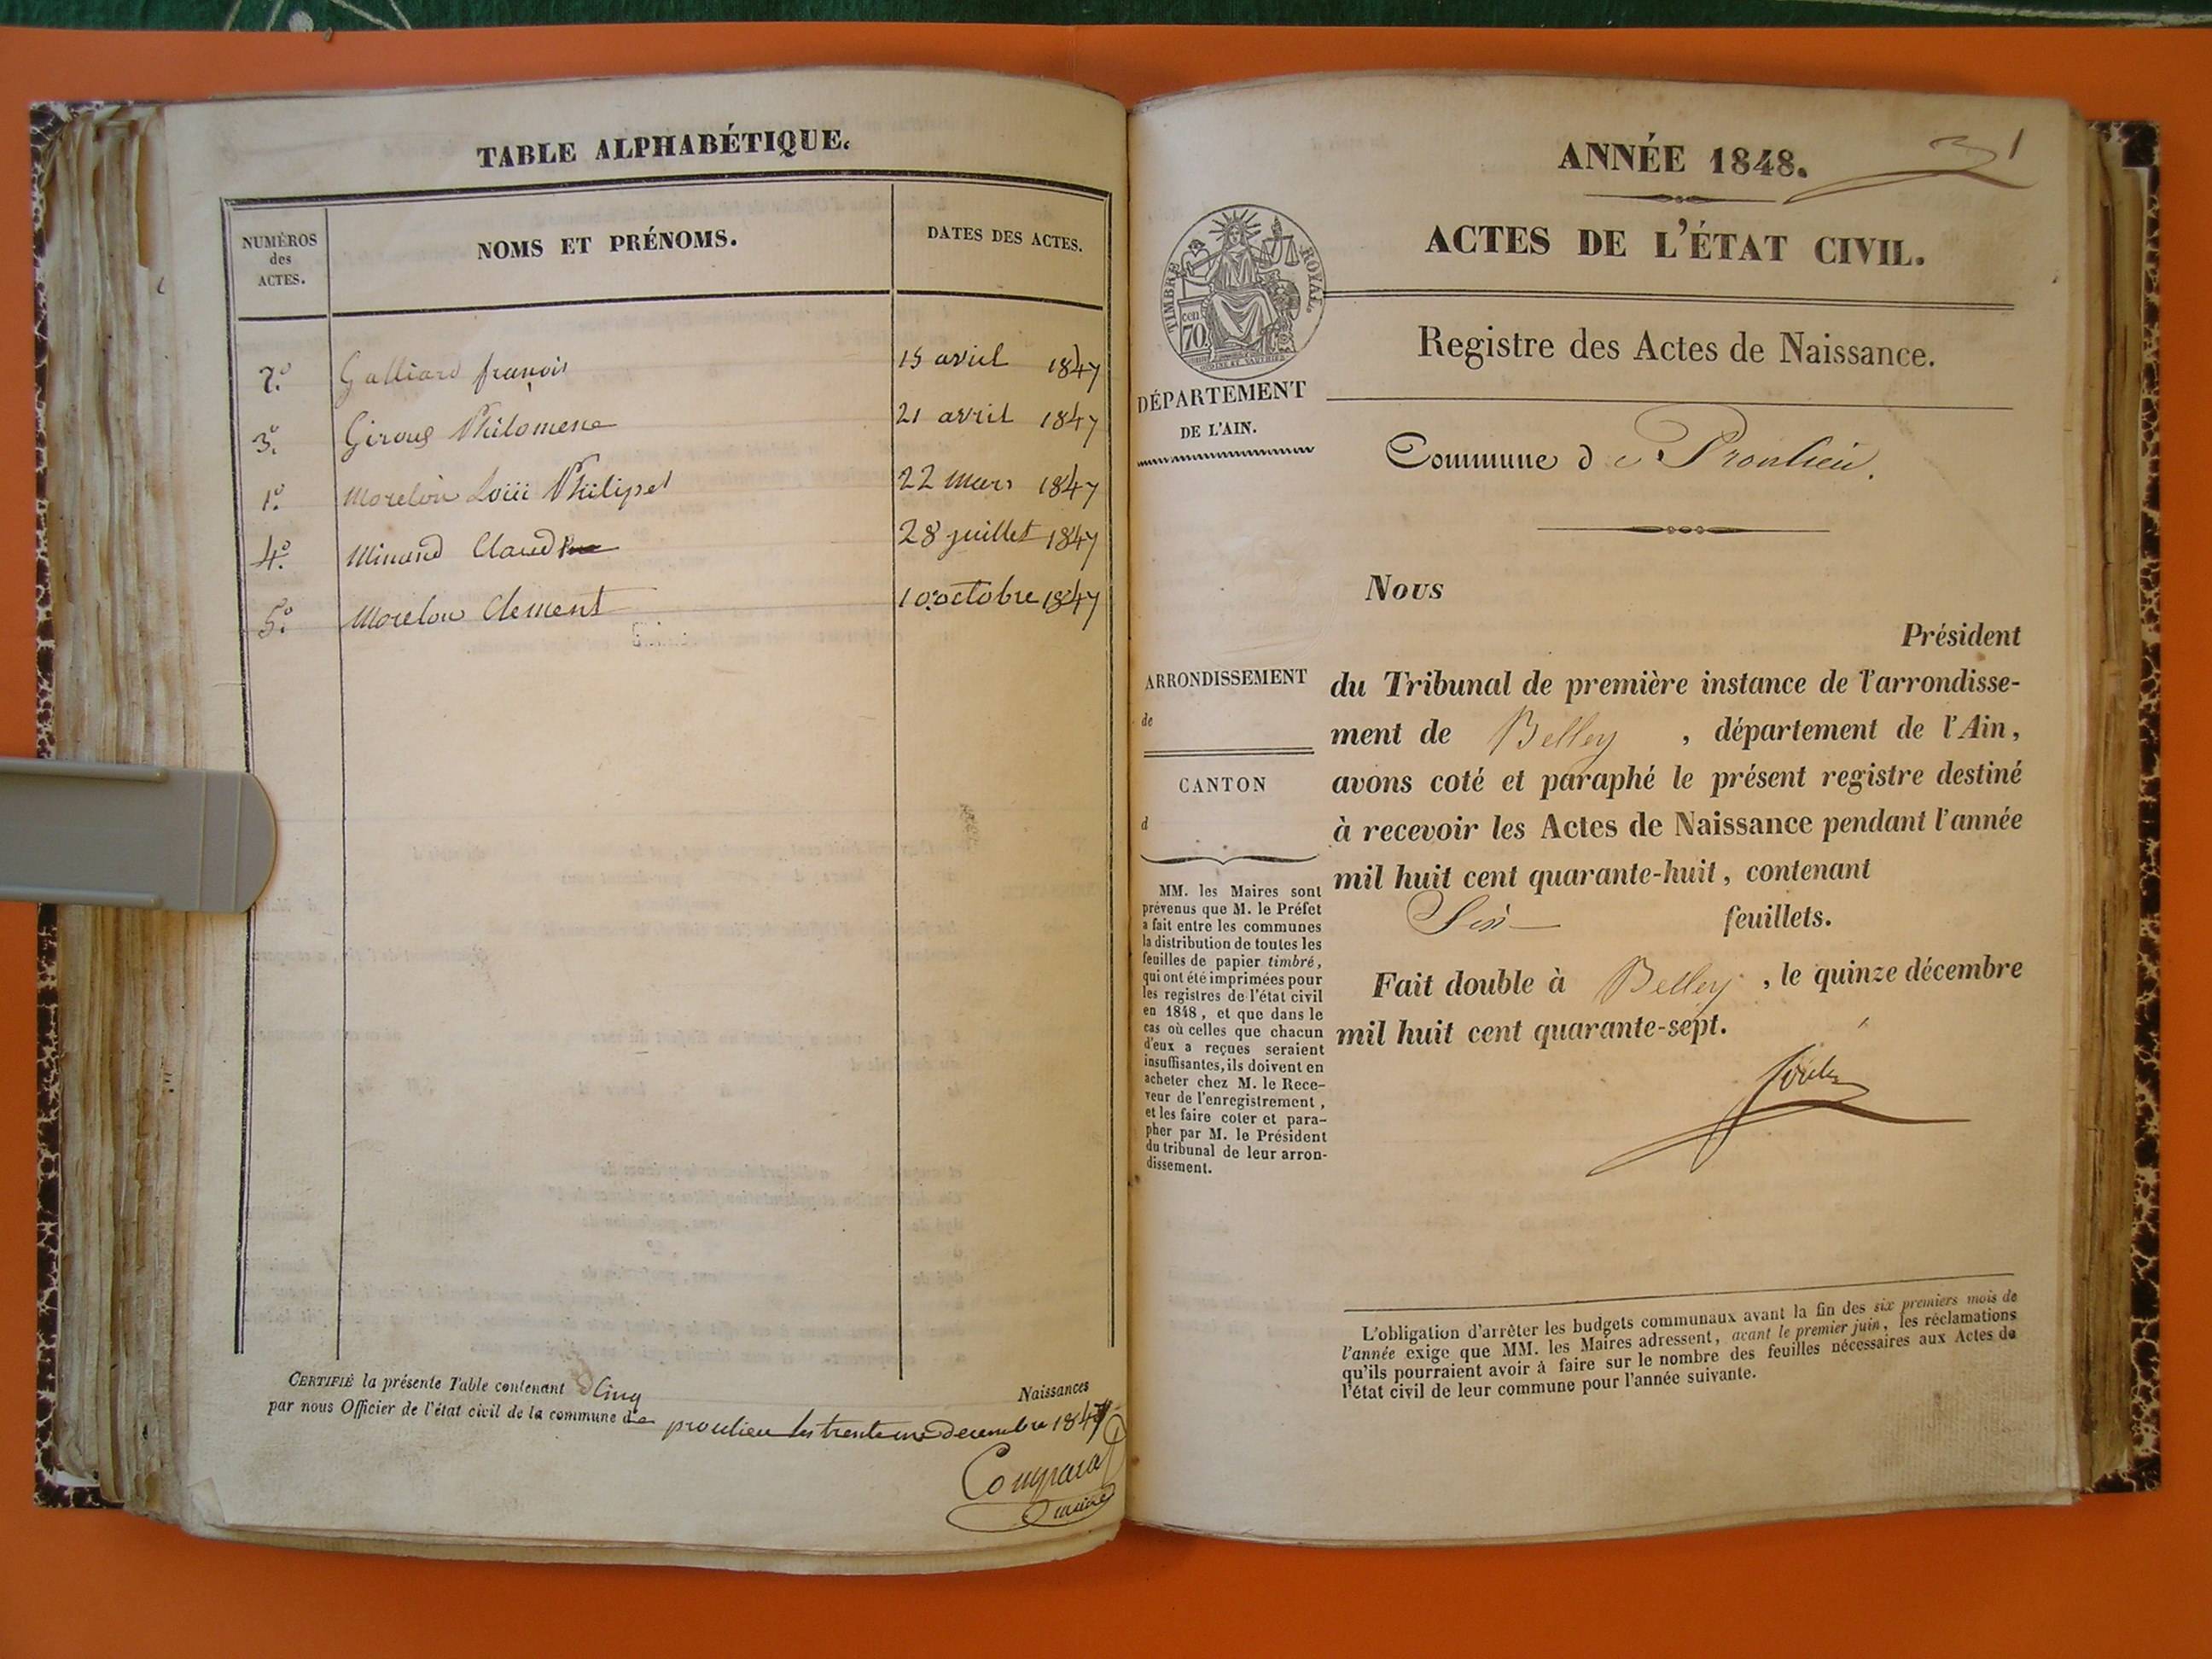 TABLE ALPHABÉTIQUE.
NUMÉROS
des
ACTES.
NOMS ET PRÉNOMS.
DATES DES ACTES.
2.° Galliard françois 15 avril 1847
3.° Giroud Philomene 21 avril 1847
1.° Morelon Loüi Philipe 22 Mars 1847
4.° Minand Claud 28 juillet 1847
5.° Morelon Clement 10 octobre 1847
CERTIFIÉ la présente Table contenant Cinq Naissances
par nous Officier de l'état civil de la commune de proulieu les trente une decembre 1847
maire
ANNÉE 1848.
1
ACTES DE L'ÉTAT CIVIL.
TIMBRE ROYAL.
70 cen
Registre des Actes de Naissance.
DÉPARTEMENT
DE L'AIN.
Commune de Proulieu.
Nous
Président
du Tribunal de première instance de l'arrondisse-
ment de Belley , département de l'Ain,
avons coté et paraphé le présent registre destiné
à recevoir les Actes de Naissance pendant l'année
mil huit cent quarante-huit, contenant
Six feuillets.
Fait double à Belley , le quinze décembre
mil huit cent quarante-sept.
ARRONDISSEMENT
de
CANTON
d
MM. les Maires sont
prévenus que M. le Préfet
a fait entre les communes
la distribution de toutes les
feuilles de papier timbré,
qui ont été imprimées pour
les registres de l'état civil
en 1848, et que dans le
cas où celles que chacun
d'eux a reçues seraient
insuffisantes, ils doivent en
acheter chez M. le Rece-
veur de l'enregistrement,
et les faire coter et para-
pher par M. le Président
du tribunal de leur arron-
dissement.
L'obligation d'arrêter les budgets communaux avant la fin des six premiers mois de
l'année exige que MM. les Maires adressent, avant le premier juin, les réclamations
qu'ils pourraient avoir à faire sur le nombre des feuilles nécessaires aux Actes de
l'état civil de leur commune pour l'année suivante.